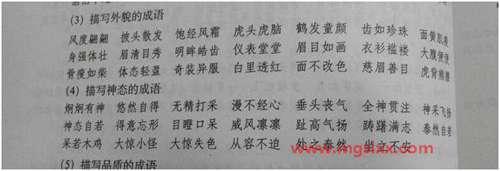 (3) 描写外貌的成语
风度翩翩 披头散发 饱经风霜 虎头虎脑 鹤发童颜 齿如珍珠 面黄肌瘦
身强体壮 眉清目秀 明眸皓齿 仪表堂堂 眉目如画 衣衫褴褛 大腹便便
骨瘦如柴 体态轻盈 奇装异服 白里透红 面不改色 慈眉善目 虎背熊腰
(4) 描写神态的成语
炯炯有神 悠然自得 无精打采 漫不经心 垂头丧气 全神贯注 神采飞扬
神态自若 得意忘形 目瞪口呆 威风凛凛 趾高气扬 踌躇满志 泰然自若
呆若木鸡 大惊小怪 大惊失色 从容不迫 处之泰然 坐立不安
(5) 描写品质的成语